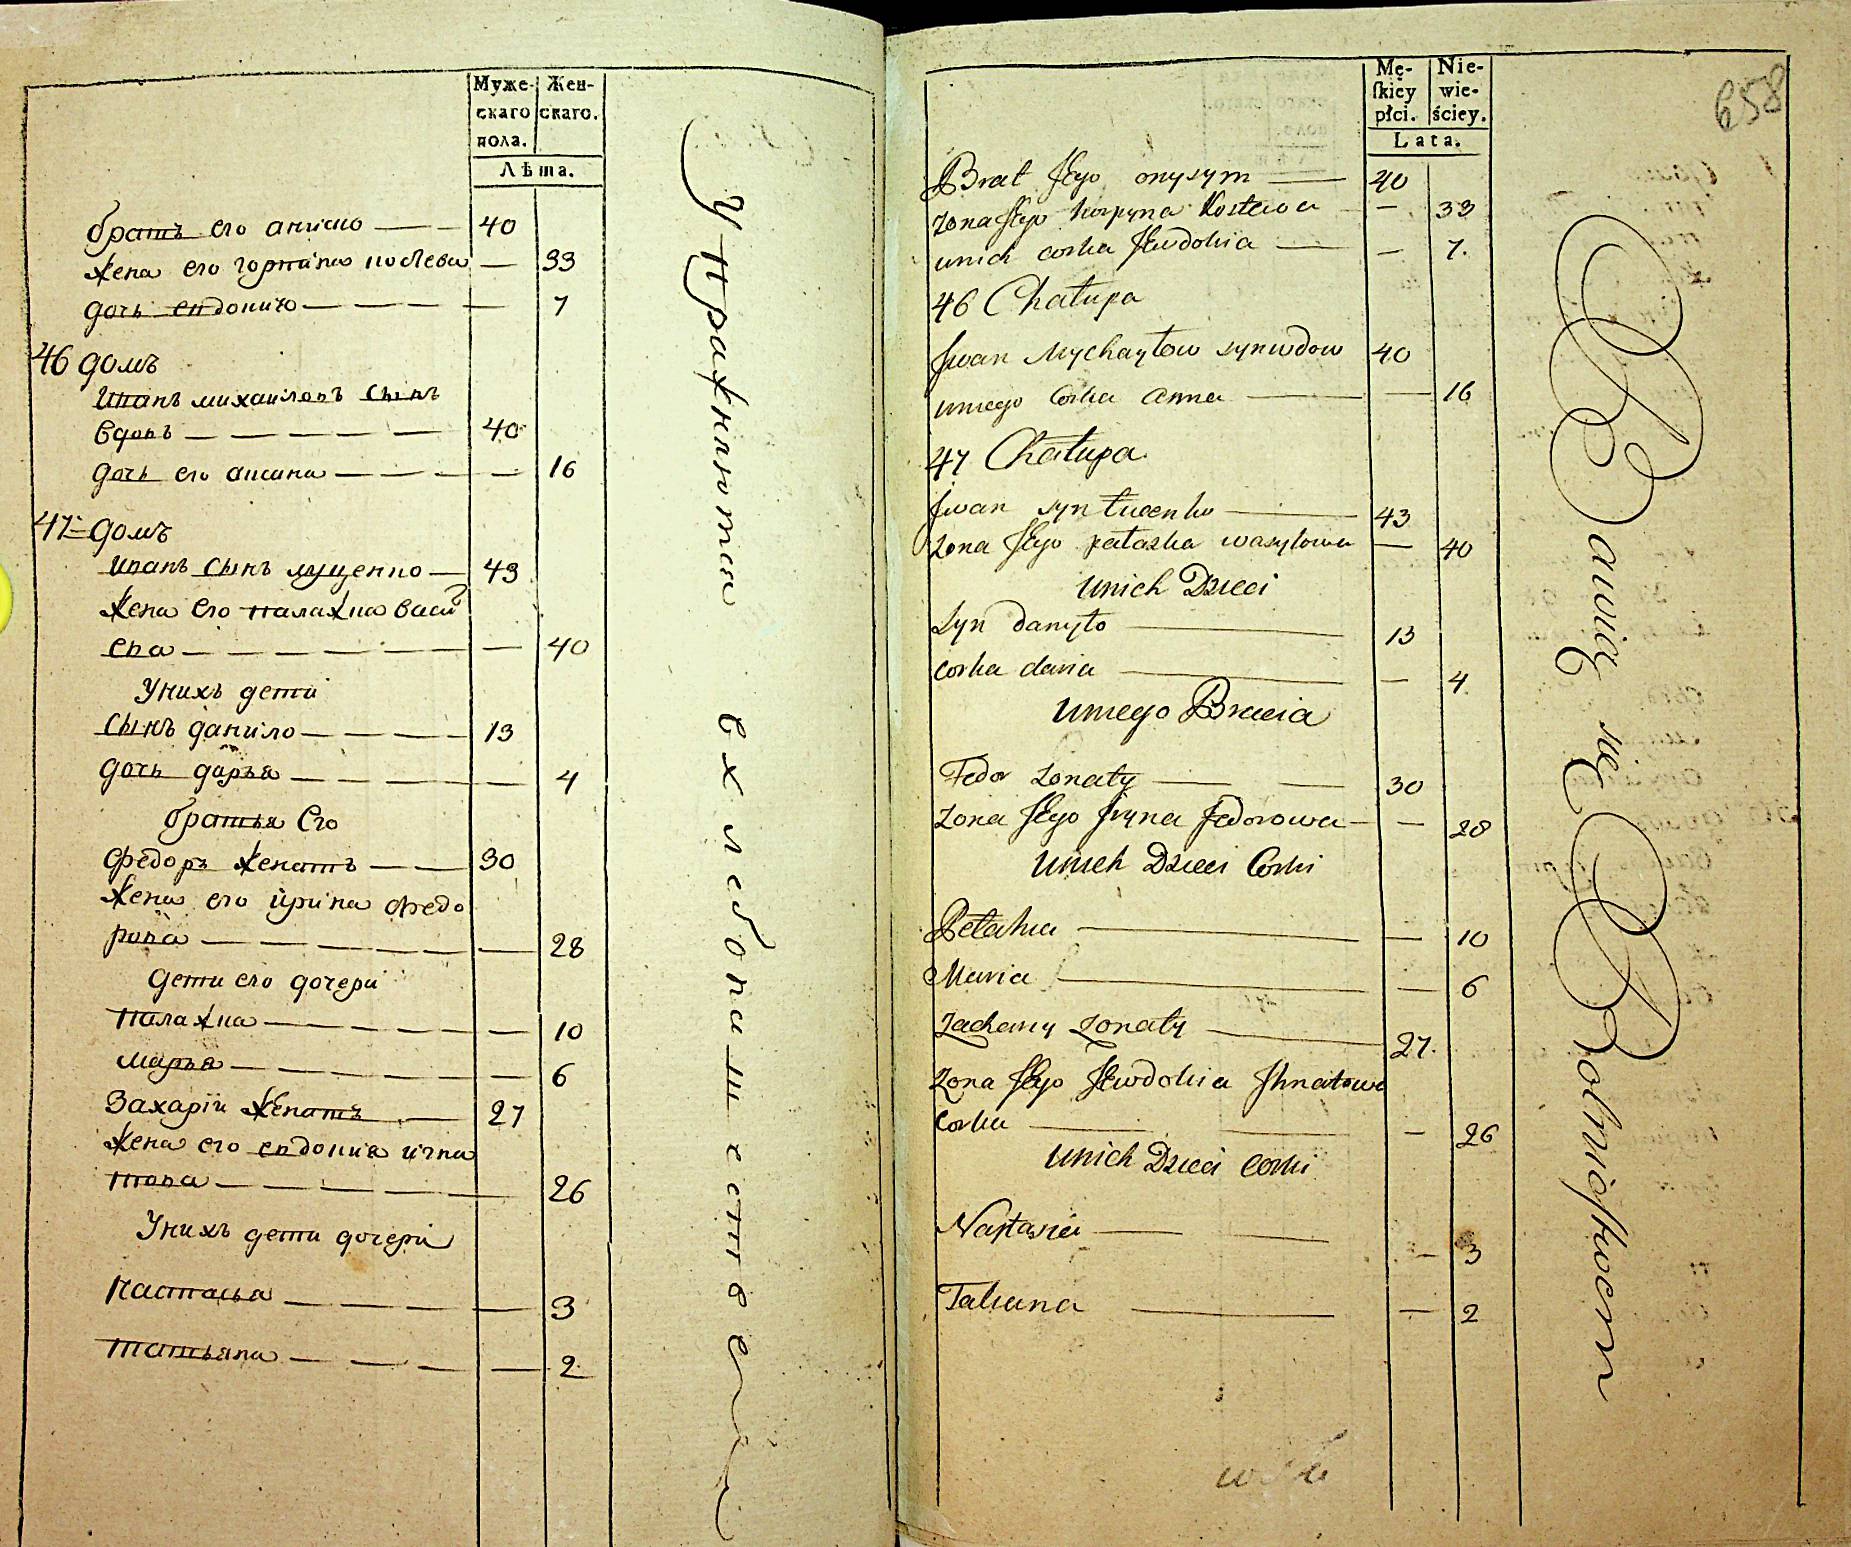 Муже-
скаго
пола.
Жен-
скаго.
Лѣта.
братъ его анисио — 40
жена его горпина костева — 33
дочь евдокию — 7
46 домъ
иванъ михаиловъ сынъ
вдовъ — 40
дочь его аксана — 16
47 домъ
иванъ сынъ луценко — 43
жена его палажка васи
ева — 40
Унихъ дети
сынъ данило — 13
дочь дарья — 4
братья его
федоръ женатъ — 30
жена его ирина федо
рова — 28
дети его дочери
палажка — 10
марья — 6
захарiи женатъ — 27
жена его евдокия игна
това — 26
Унихъ дети дочери
настасья — 3
татьяна — 2
Упражнютца в хлебопашестве
658
Mę-
skiey
płci.
Nie-
wie-
ściey.
Lata.
Brat Jego onysym — 40
zona Jego horpyna Kostewa — 33
unich corka Jewdokia — 7.
46 Chałupa
Jwan Mychayłow syn wdow 40
uniego Corka Anna — 16
47 Chałupa
Jwan syn łucenko — 43
zona Jego pałaszka wasylowa — 40
unich Dzieci
syn danyło — 13
corka daria — 4
uniego Bracia
Fedor zonaty — 30
zona Jego Jryna Fedorowa — 28
unich Dzieci Corki
Pełahia — 10
Maria — 6
Zachary zonaty — 27.
zona Jego Jewdokia Jhnatowa
Corka — 26
unich Dzieci Corki
Nastasia — 3
Tatiana — 2
Bawią się Rolnictwem